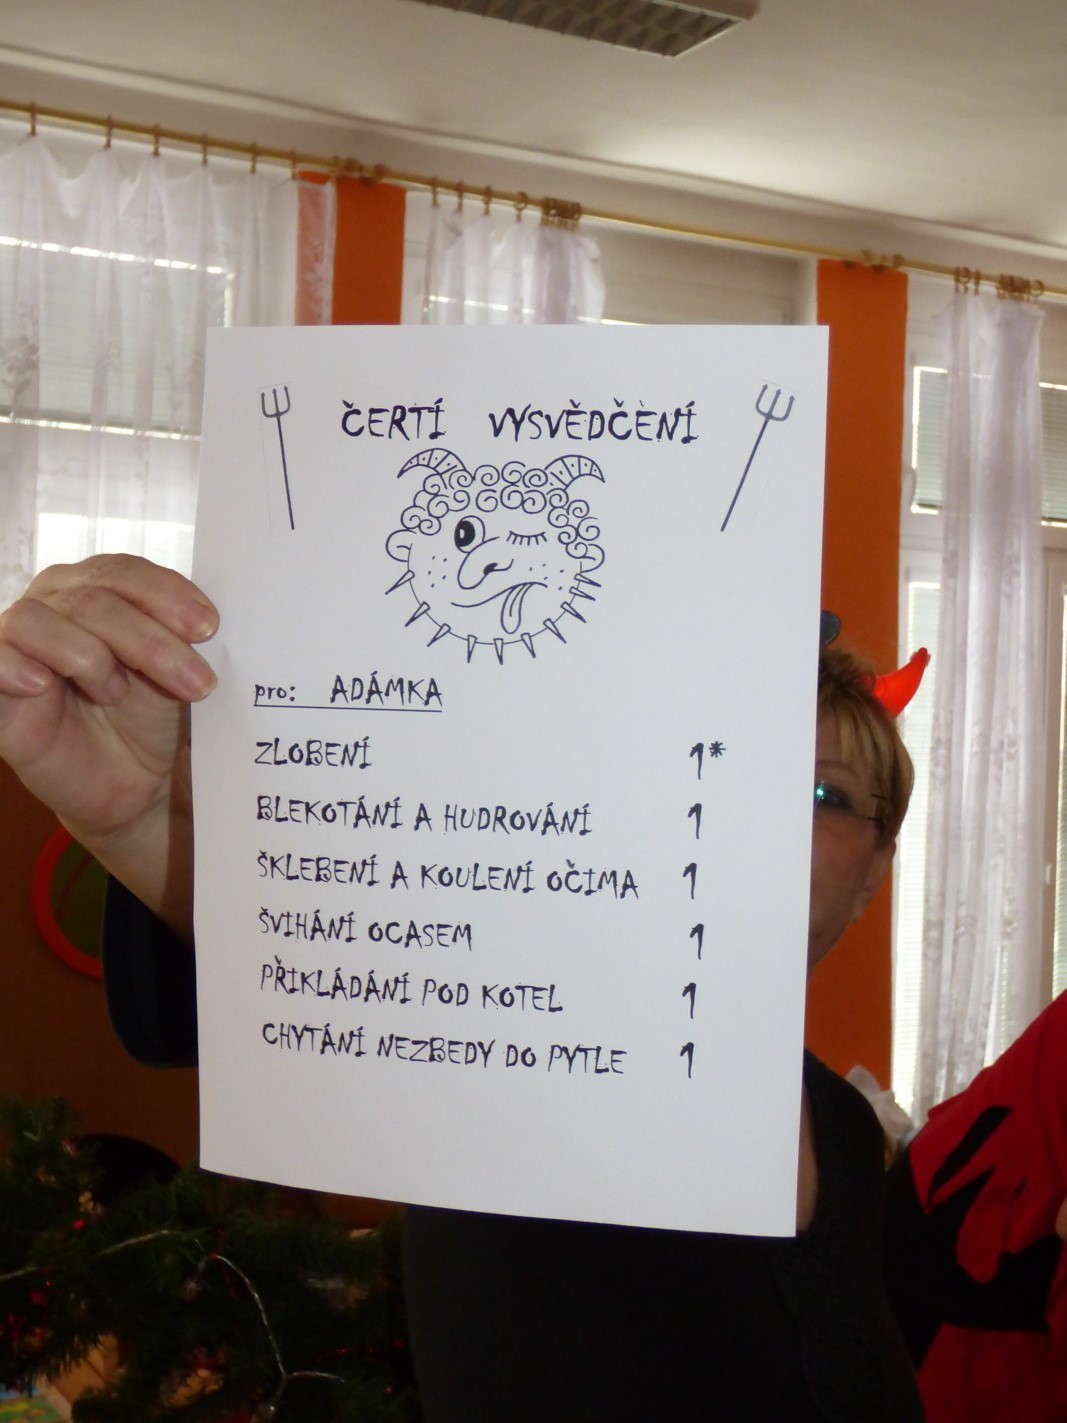 ČERTÍ VYSVĚDČENÍ
pro: ADÁMKA
ZLOBENÍ 1*
BLEKOTÁNÍ A HUDROVÁNÍ 1
ŠKLEBENÍ A KOULENÍ OČIMA 1
ŠVIHÁNÍ OCASEM 1
PŘIKLÁDÁNÍ POD KOTEL 1
CHYTÁNÍ NEZBEDY DO PYTLE 1